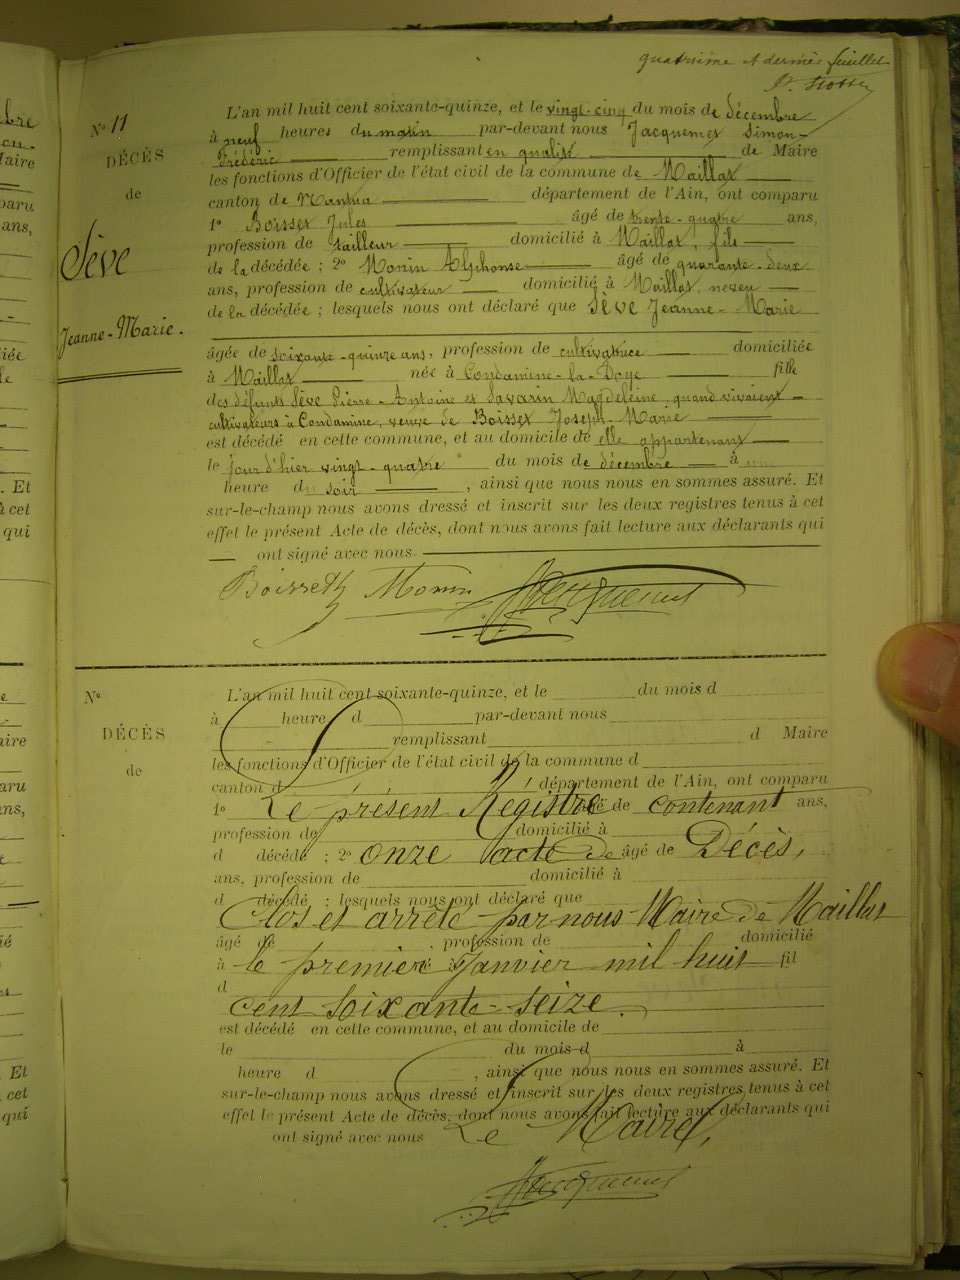 quatrième et dernier feuillet
N° 11
DÉCÈS
de
Sève
Jeanne-Marie.
L'an mil huit cent soixante-quinze, et le vingt-cinq du mois de décembre
à neuf heures du matin par-devant nous Jacquemet Simon-
Frédéric remplissant en qualité de Maire
les fonctions d'Officier de l'état civil de la commune de Maillat
canton de Nantua département de l'Ain, ont comparu
1° Boisset Jules âgé de trente-quatre ans,
profession de tailleur domicilié à Maillat, fils
de la décédée ; 2° Monin Alphonse âgé de quarante-deux
ans, profession de cultivateur domicilié à Maillat, neveu
de la décédée ; lesquels nous ont déclaré que Sève Jeanne-Marie
âgée de soixante-quinze ans, profession de cultivatrice domiciliée
à Maillat née à Condamine-la-Doye fille
des défunts Sève Pierre-Antoine et Savarin Magdeleine, quand vivaient
cultivateurs à Condamine, veuve de Boisset Joseph-Marie
est décédé en cette commune, et au domicile de elle appartenant
le jour d'hier vingt-quatre du mois de décembre à une
heure du soir , ainsi que nous nous en sommes assuré. Et
sur-le-champ nous avons dressé et inscrit sur les deux registres tenus à cet
effet le présent Acte de décès, dont nous avons fait lecture aux déclarants qui
ont signé avec nous.
Boisset Monin Jacquemet
N°
DÉCÈS
de
L'an mil huit cent soixante-quinze, et le du mois d
à heure d par-devant nous
remplissant d Maire
les fonctions d'Officier de l'état civil de la commune d
canton d département de l'Ain, ont comparu
1° Le présent Régistre âgé de contenant ans,
profession de domicilié à
d décédé ; 2° onze acte de âgé de Décès,
ans, profession de domicilié à
d décédé ; lesquels nous ont déclaré que
Clos et arrêté par nous Maire de Maillat
âgé de profession de domicilié
à le premier Janvier mil huit fil
d
cent soixante-seize.
est décédé en cette commune, et au domicile de
le du mois d à
heure d , ainsi que nous nous en sommes assuré. Et
sur-le-champ nous avons dressé et inscrit sur les deux registres tenus à cet
effet le présent Acte de décès, dont nous avons fait lecture aux déclarants qui
ont signé avec nous
Le Maire,
Jacquemet